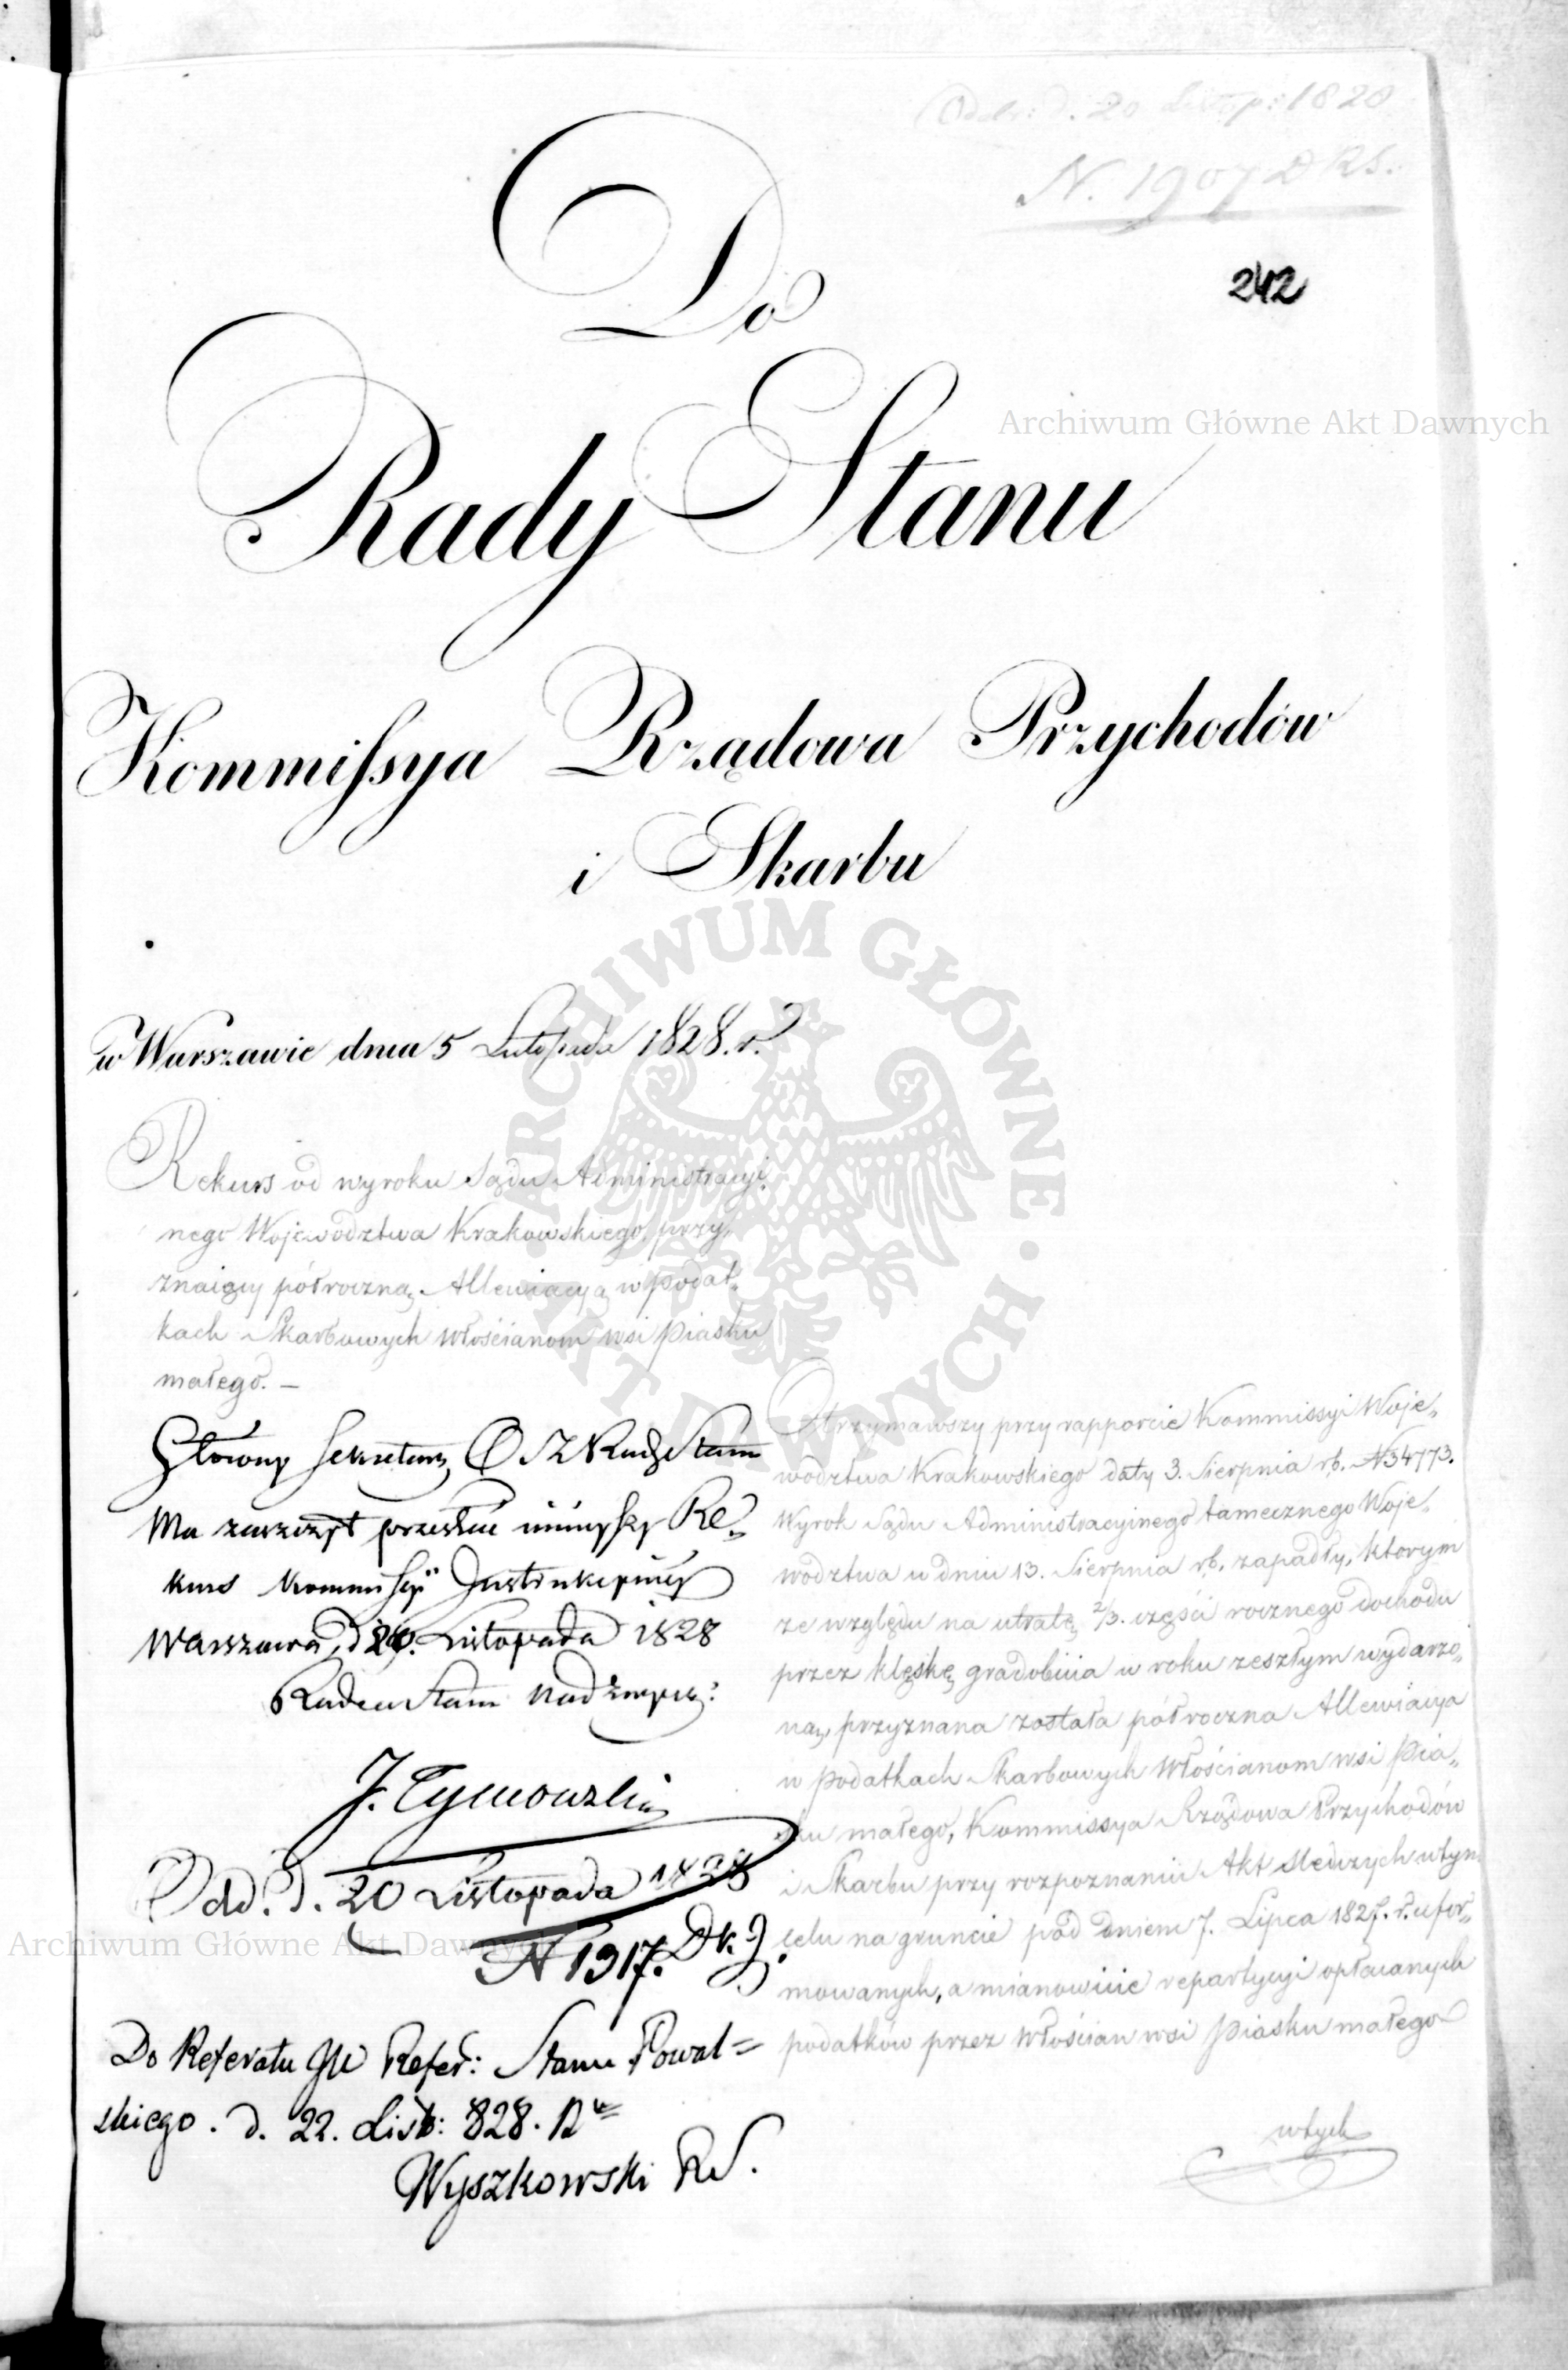 Odebr: d. 20 Listop: 1828
N. 1907 D RS.
242
Do
Rady Stanu
Kommissya Rządowa Przychodów
i Skarbu
w Warszawie dnia 5 Listopada 1828. r.
Rekurs od wyroku Sądu Administracyi,
nego Województwa Krakowskiego, przy,
znaiący półroczną Allewiacyą w podat,
kach Skarbowych włościanom wsi Piasku
małego. —
Główny Sekretarz Rady Stanu
Ma zaszczyt przesłać ninieyszy Re,
kurs Kommissyi
Warszawa, d. 20. Listopada 1828
Radca Stanu Nadzwycz:
J. Tymowski
Odd. d. 20 Listopada 1828
N 1917. D k. J.
Do Referatu JW Refer: Stanu Powal=
skiego. d. 22. List: 828. R
Wyszkowski RS.
Otrzymawszy przy rapporcie Kommissyi Woje,
wodztwa Krakowskiego daty 3. Sierpnia rb. N34773.
Wyrok Sądu Administracyinego tamecznego Woje,
wodztwa w dniu 13. Sierpnia rb. zapadły, którym
ze względu na utratę 2/3. części rocznego dochodu
przez klęskę gradobicia w roku zeszłym wydarzo,
ną, przyznana została półroczna Allewiacya
w podatkach Skarbowych Włościanom wsi Pia,
sku małego, Kommissya Rządowa Przychodów
i Skarbu przy rozpoznaniu Akt śledczych wtym
celu na gruncie pod dniem 7. Lipca 1827. r. ufor,
mowanych, a mianowicie repartycyi opłacanych
podatków przez Włościan wsi Piasku małego
wtych